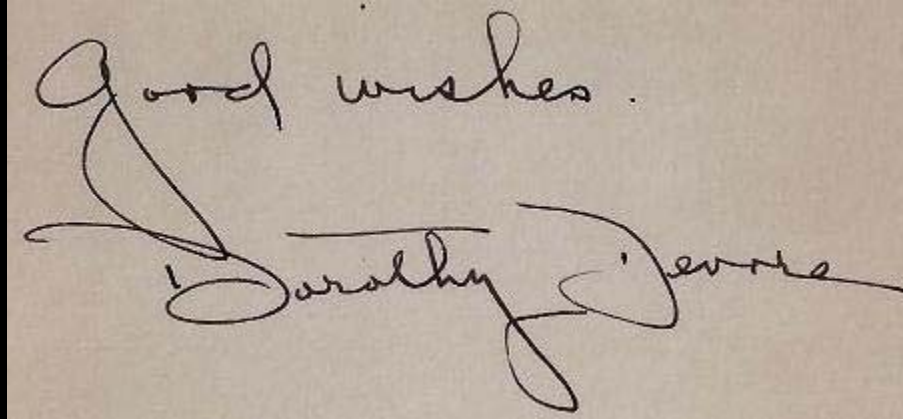 Good wishes.
Dorothy Devore